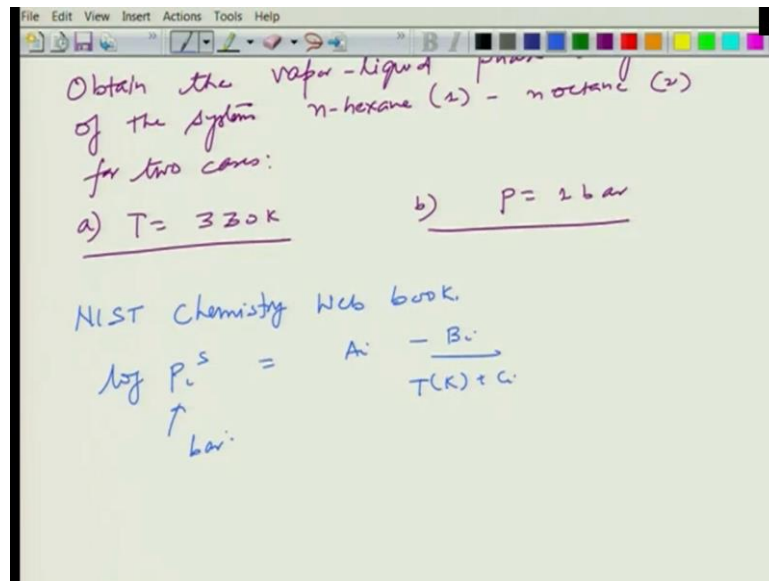 File Edit View Insert Actions Tools Help
B I
Obtain the vapor-liquid phase
of the system n-hexane (1) - n octane (2)
for two cases:
a) T = 330K b) P = 1 bar
NIST Chemistry Web book.
log Pi^s = Ai - Bi / T(K) + Ci
↑
bar